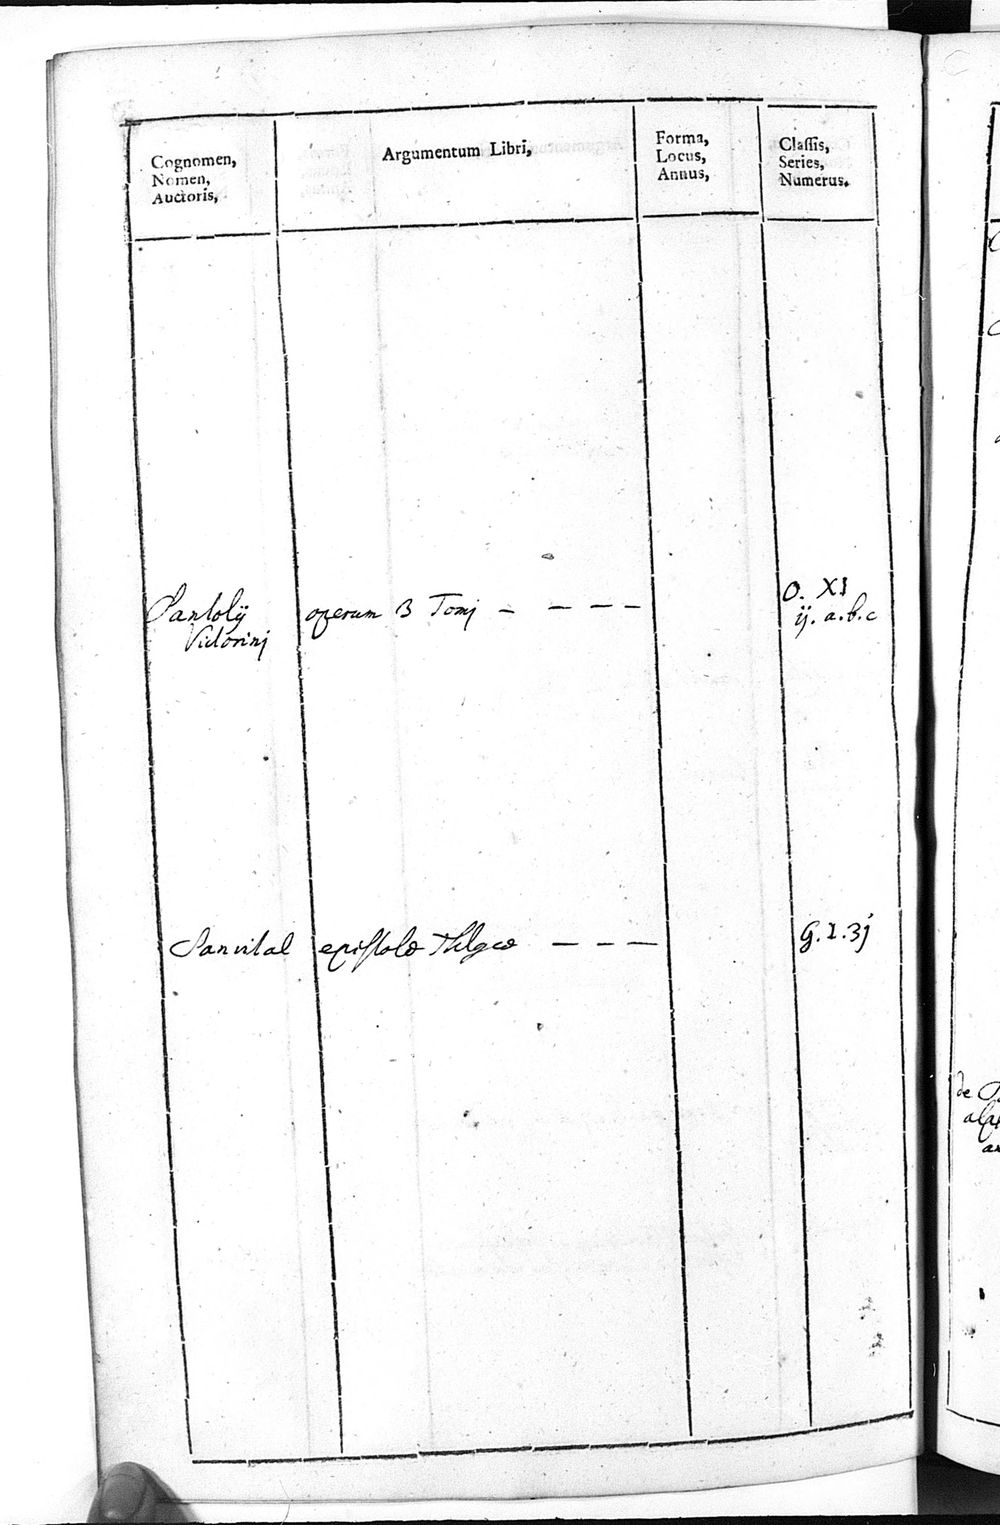 Cognomen,
Nomen,
Auctoris,
Argumentum Libri,
Forma,
Locus,
Annus,
Classis,
Series,
Numerus.
Santolij
Victorinj
operum 3 Tomj - - - -
O. XI
ij. a.b.c
Sanvital
epistole - - -
G.I.3j
de